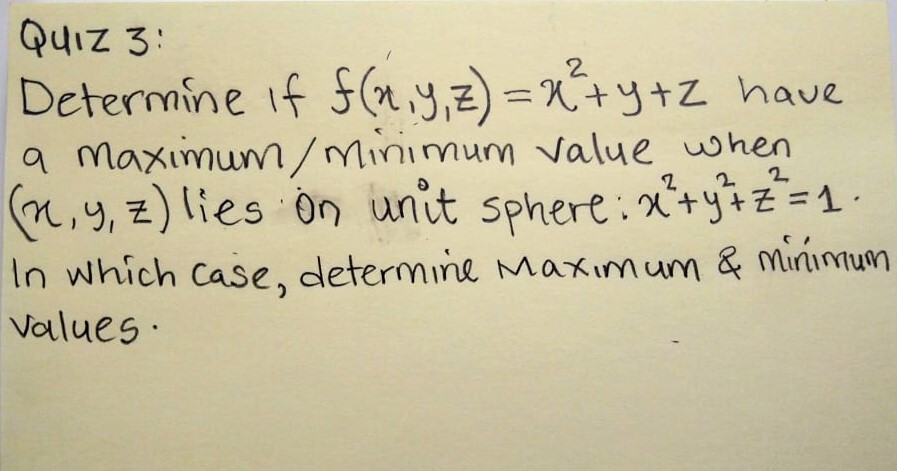 QUIZ 3:
Determine if f(x,y,z) = x²+y+z have
a maximum/minimum value when
(x,y,z) lies on unit sphere: x²+y²+z²=1.
In which case, determine Maximum & minimum
values.